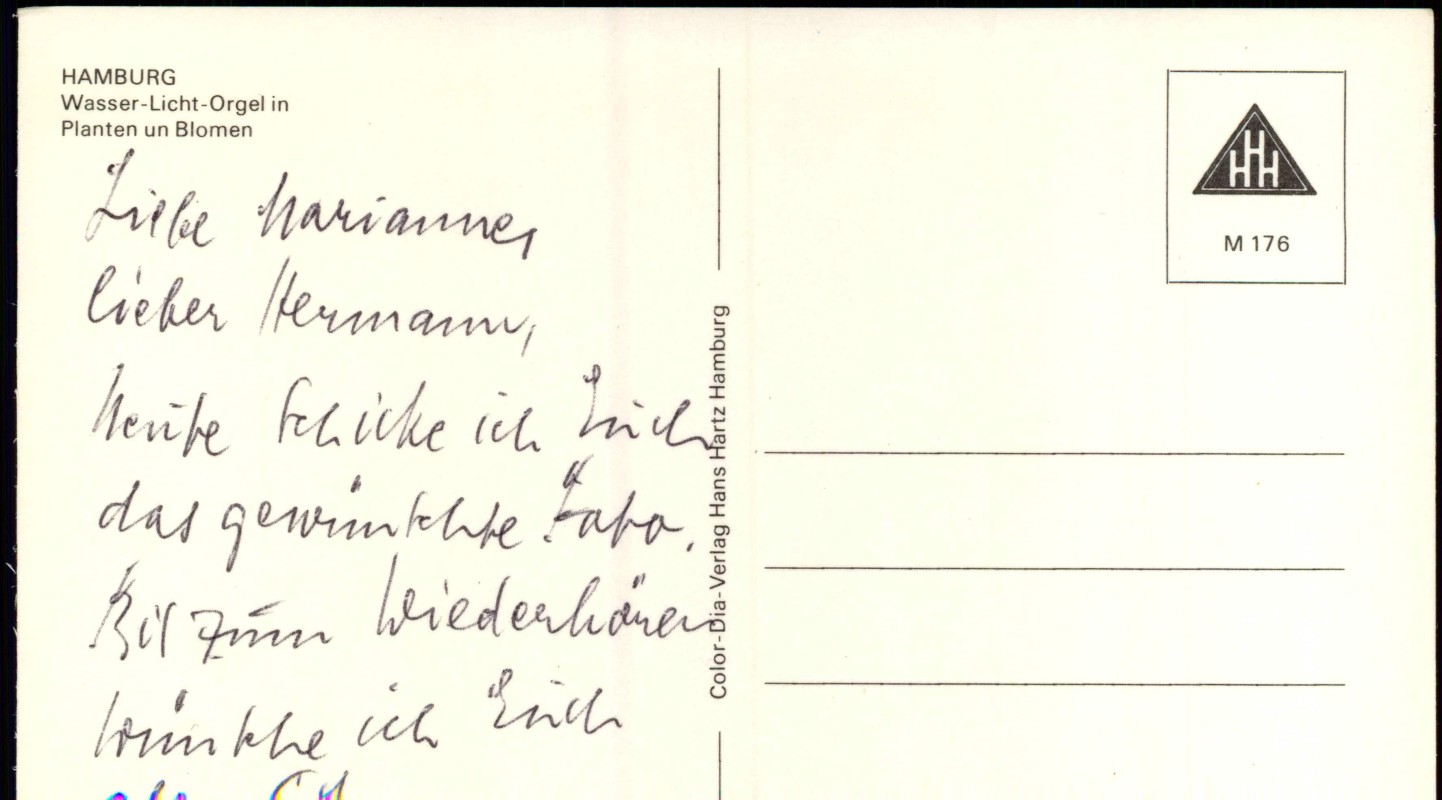 HAMBURG
Wasser-Licht-Orgel in
Planten un Blomen
Liebe Marianne,
lieber Hermann,
heute schicke ich Euch
das gewünschte Foto.
Bis zum Wiederhören
wünsche ich Euch
Color-Dia-Verlag Hans Hartz Hamburg
HHH
M 176